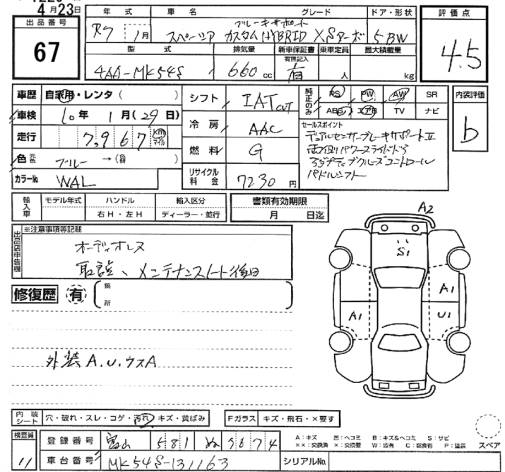 4月23日
出品番号
67
年式 車名 グレード ドア・形状
R7 1月 スペーシア ブレーキサポート カスタムHYBRID XSターボ 5BW
型式 排気量 新車保証書 乗車定員 最大積載量
有無記入
4AA-MK54S 660cc 有 人 kg
評価点
4.5
車歴 自家用・レンタ( )
車検 10年 1月(29)日
走行 7,967 km マイル
色 元色 ブルー →( )色替
カラーNo WAL
シフト IAT CVT
冷房 AAC
燃料 G
リサイクル料金 7230円
純正のみ PS PW AW SR
ABS エアB TV ナビ
内装評価
b
セールスポイント
デュアルセンサーブレーキサポートII
両側パワースライドドア
アダプティブクルーズコントロール
パドルシフト
輸入車 モデル年式 ハンドル 輸入区分
右H・左H ディーラー・並行
書類有効期限
月 日迄
出品店申告欄
※注意事項等記載
オーディオレス
取説、メンテナンスノート後日
修復歴 有 箇所
外装A.U.ウスA
A2
S1
A1
A1
U1
内装シート 穴・破れ・スレ・コゲ・汚れ・キズ・黄ばみ
Fガラス キズ・飛石・×要す
検査員 11
登録番号 富山 581 ぬ 3674
車台番号 MK54S-131163
シリアルNo.
A:キズ U:ヘコミ B:キズ&ヘコミ S:サビ
××:交換済 ×:交換要 W:波 C:腐食 P:塗装
スペア